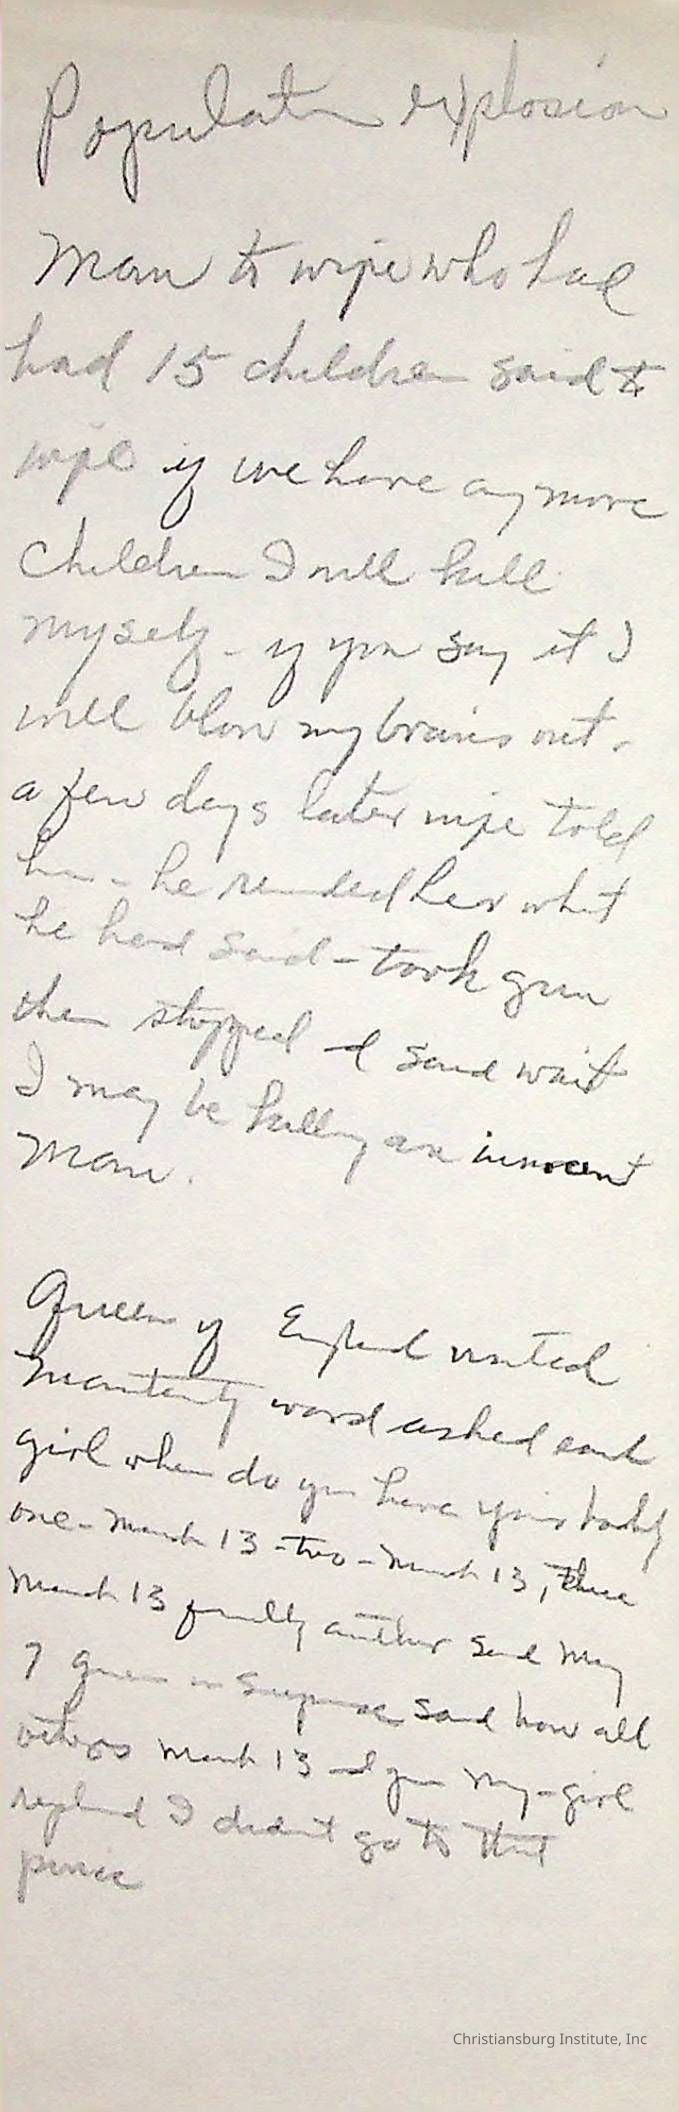 Population explosion
Man to wife who had
had 15 children said to
wife if we have any more
children I will kill
myself - if you say it I
will blow my brains out.
a few days later wife told
him - he reminded her what
he had said - took gun
then stopped & said wait
I may be killing an innocent
man.
Queen of England visited
maternity ward asked each
girl when do you have your baby
one - March 13 - two - March 13, three
March 13 finally another said May
7 Queen in surprise said how all
others March 13 & you May - girl
replied I didn't go to that
picnic
Christiansburg Institute, Inc